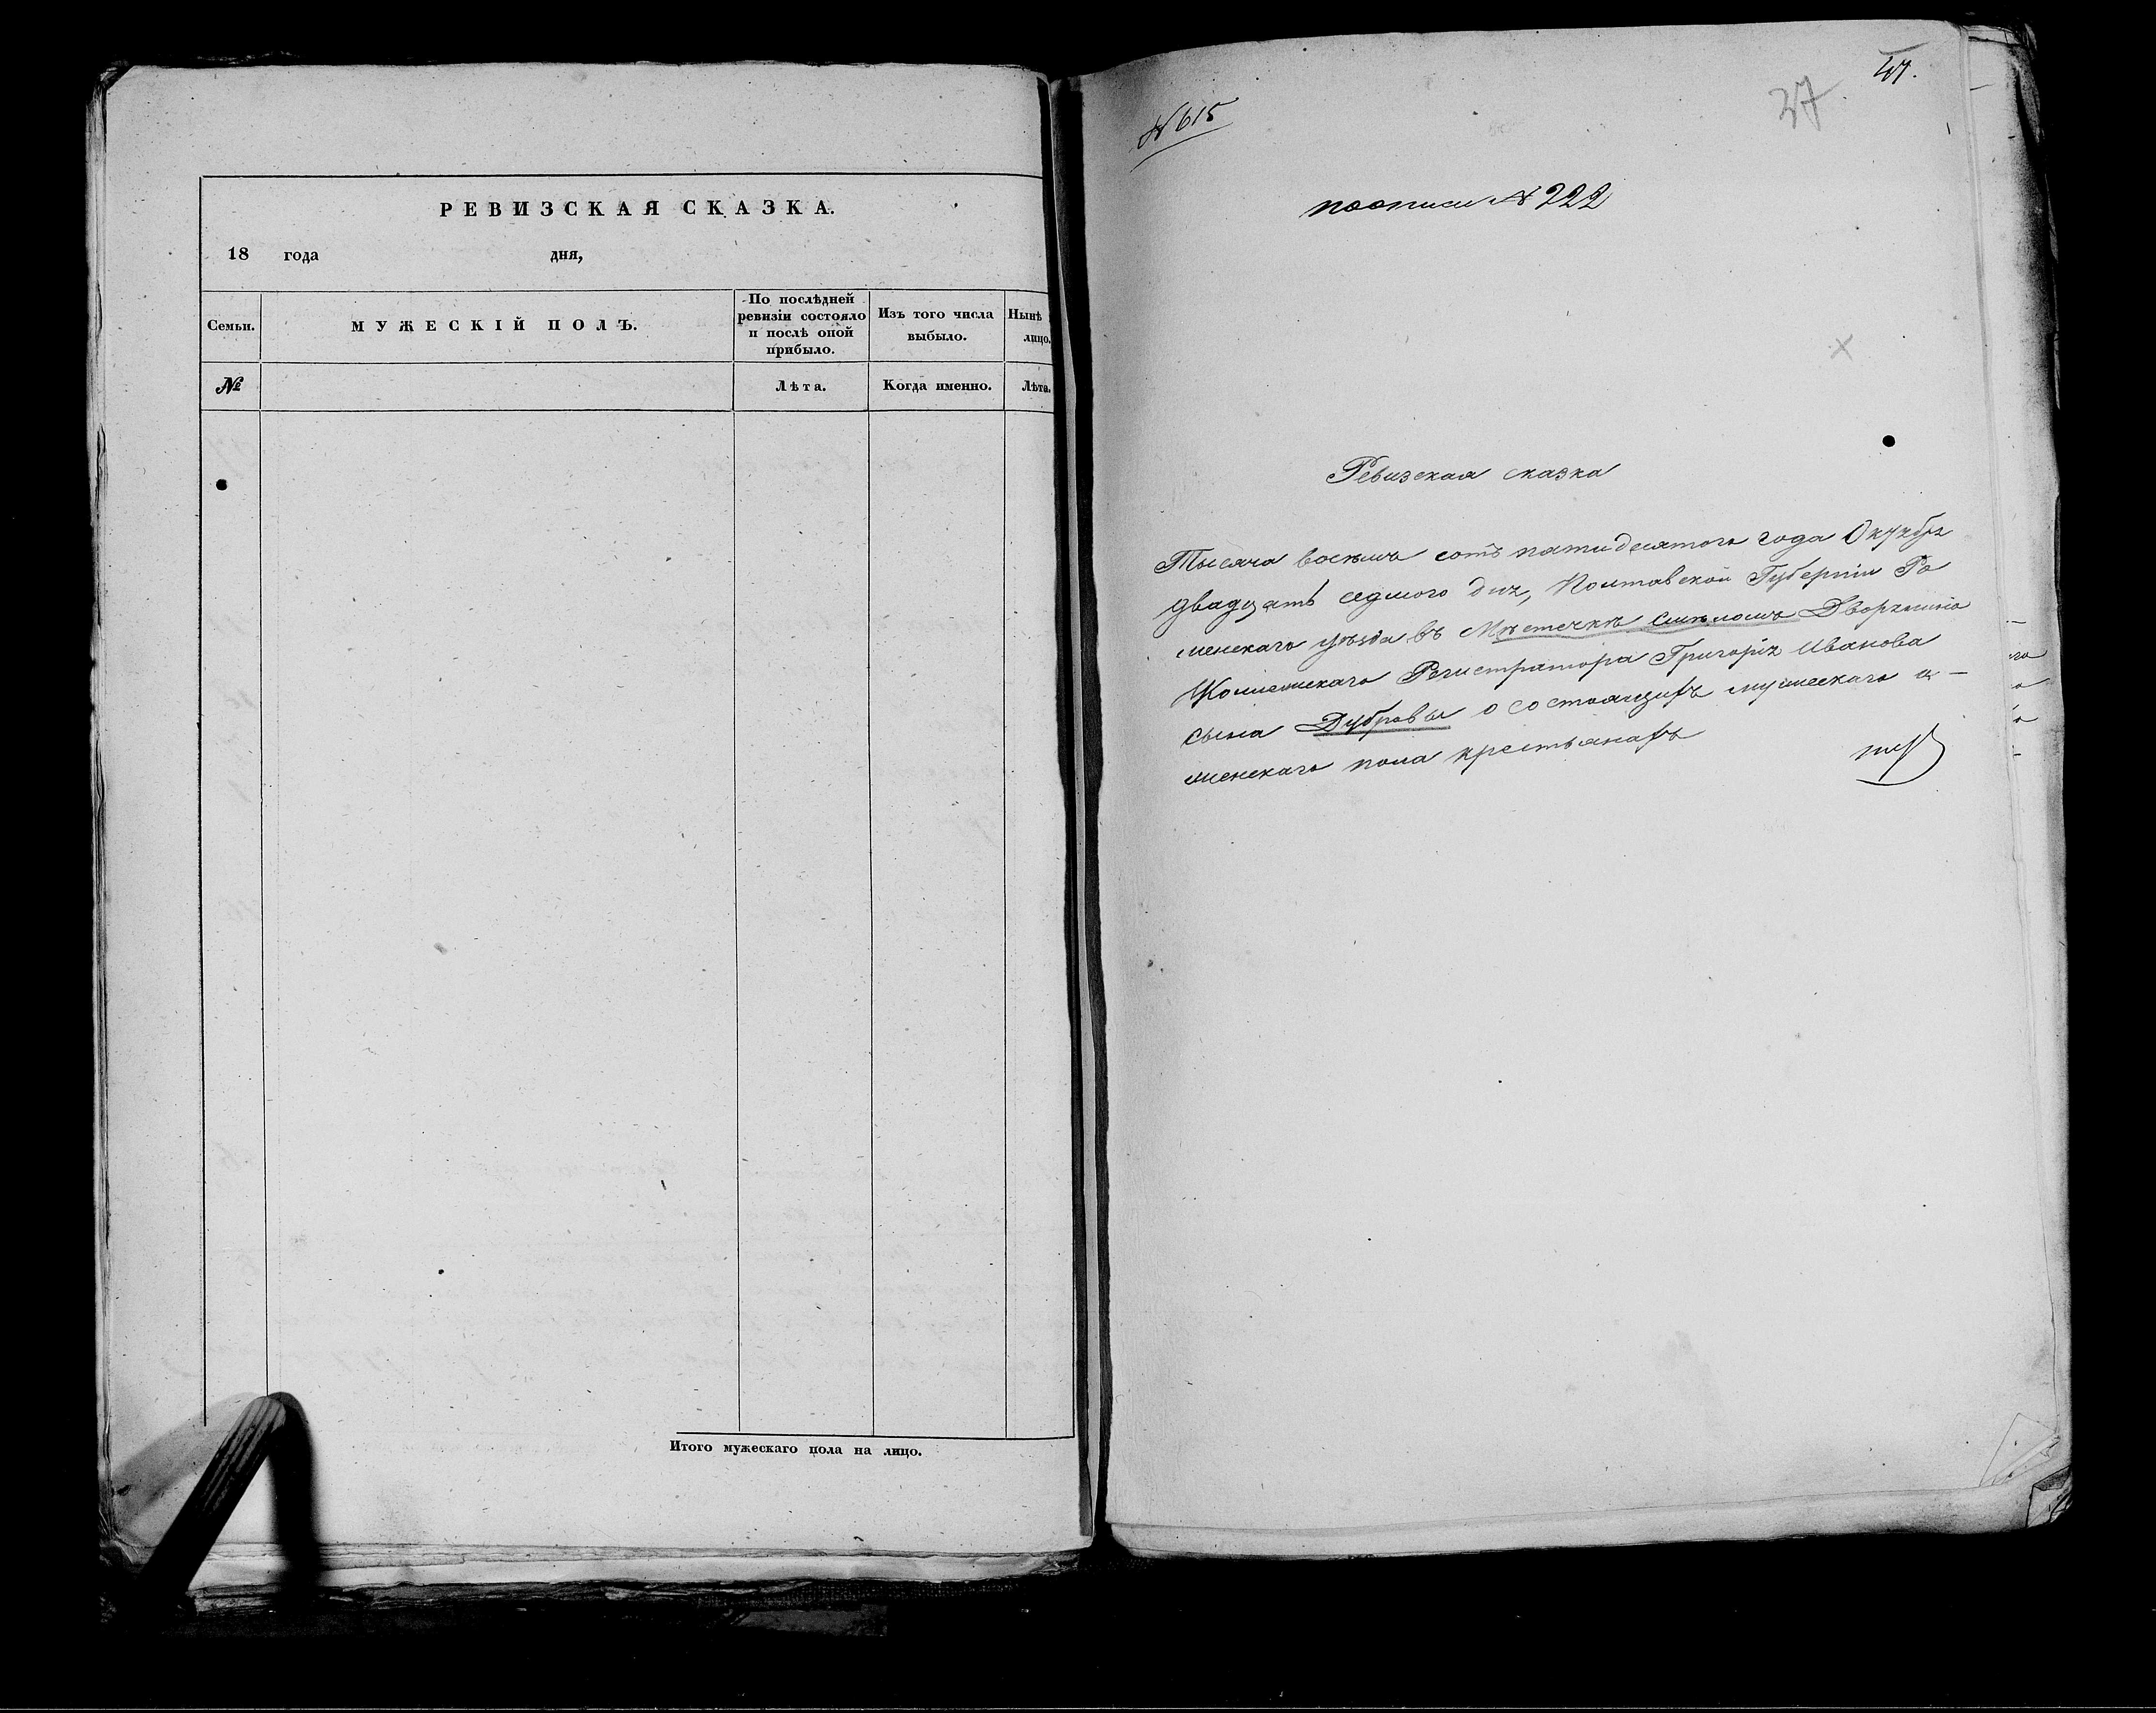 РЕВИЗСКАЯ СКАЗКА.
18 года дня,
Семьи.
МУЖЕСКІЙ ПОЛЪ.
По послѣдней
ревизіи состояло
и послѣ оной
прибыло.
Изъ того числа
выбыло.
Нынѣ
лицо.
№
Лѣта.
Когда именно.
Лѣта.
Итого мужескаго пола на лицо.
37
№ 615
по описи № 222
Ревизская сказка
Тысяча восемь сотъ пятидесятого года Октября
двадцать седмого дня, Полтавской Губерніи Ро
менскаго уѣзда въ Мѣстечкѣ Смѣломъ Дворянина
Коллежскаго Регистратора Григорія Иванова
сына Дубровы о состоящихъ мужескаго и
женскаго пола крестьянахъ